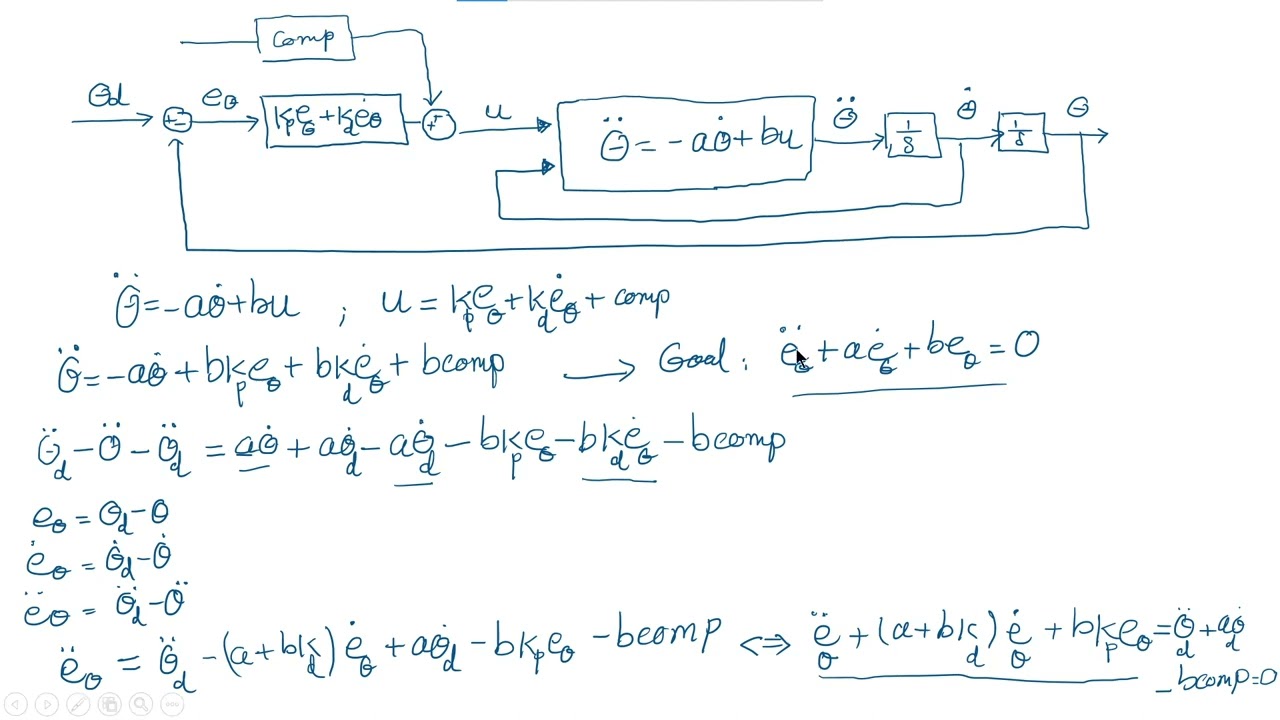 Comp
θd
eθ
kₚeθ + k_dėθ
u
θ̈ = -aθ̇ + bu
θ̈
1/s
θ̇
1/s
θ
θ̈ = -aθ̇ + bu ; u = kₚeθ + k_dėθ + comp
θ̈ = -aθ̇ + bkₚeθ + bk_dėθ + bcomp → Goal : ëθ + aėθ + beθ = 0
θ̈d - θ̈ - θ̈d = aθ̇ + aθ̇d - aθ̇d - bkₚeθ - bk_dėθ - bcomp
eθ = θd - θ
ėθ = θ̇d - θ̇
ëθ = θ̈d - θ̈
ëθ = θ̈d - (a + bk_d) ėθ + aθ̇d - bkₚeθ - bcomp ⇔ ëθ + (a + bk_d) ėθ + bkₚeθ = θ̈d + aθ̇d
- bcomp = 0